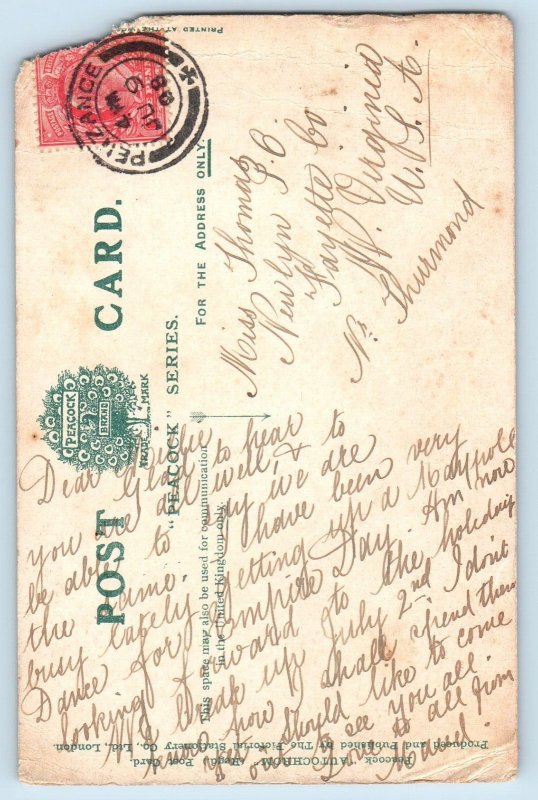 PRINTED AT THE
PENZANCE
4 PM
JU 6
08
POST CARD.
PEACOCK
BRAND
TRADE MARK
"PEACOCK" SERIES.
This space may also be used for communication
in the United Kingdom only.
FOR THE ADDRESS ONLY.
Miss Thomas
Newlyn P.O.
Fayette Co
W. Virginia
U.S.A.
Nr Thurmond
Dear
Glad to hear
you are all well, & to
be able to say we are
the same. I have been very
busy lately getting up a Maypole
Dance for Empire Day. Am now
looking forward to the holidays
We break up July 2nd. I don't
know how I shall spend them
yet. Should like to come
over to see you all.
Love to all from
Muriel.
Peacock "AUTOCHROM" (Regd.) Post Card.
Produced and Published by The Pictorial Stationery Co., Ltd., London.